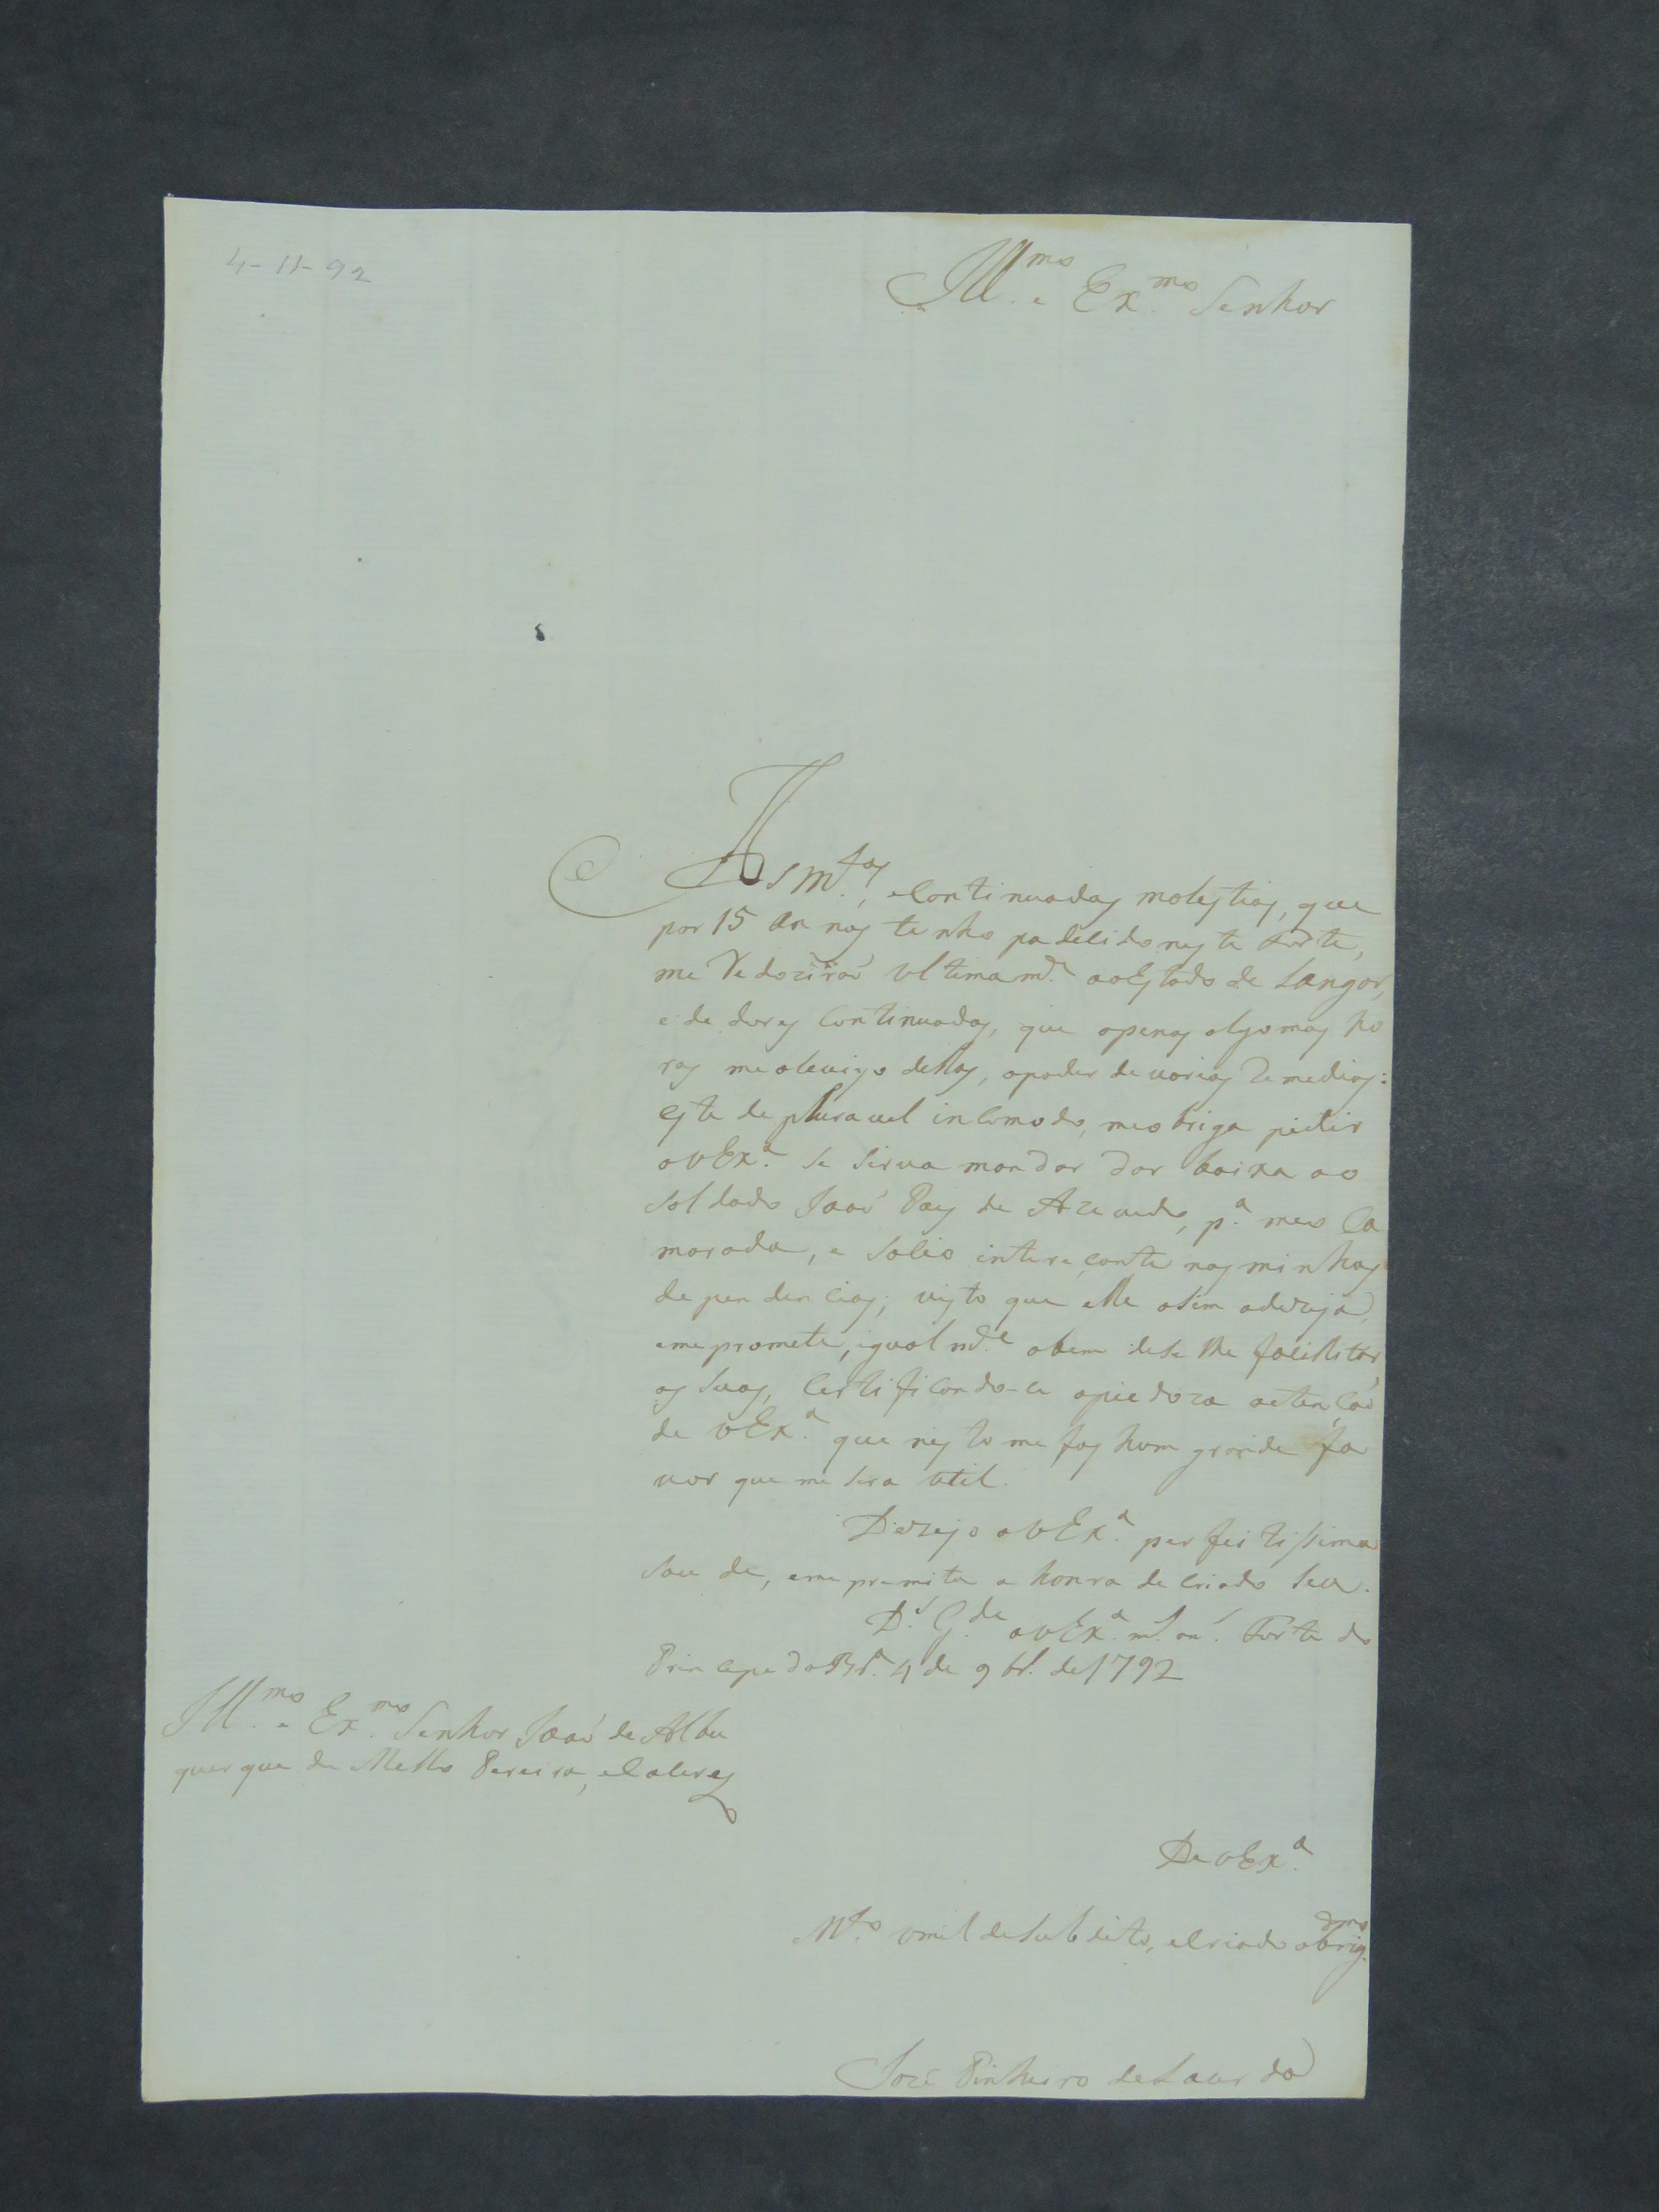 4-11-92
Ill.mo e Ex.mo Senhor
As m.tas, e Continuadas molestias, que
por 15 annos tenho padecido neste Forte,
me Redoziraõ ultimam.e ao Estado de Langor,
e de dores Continuadas, que apenas algumas ho
ras me alevigo dellas, apoder de varias Remedias:
este depluravel incomodo, me obriga pidir
a v Ex.a se sirva mandar dar baixa ao
Soldado Joaõ Paes de Azevedo, p.a meo Ca
marada, e Socio intereçante nas minhas
dependencias; visto que elle asim adezeja,
eme promete, igual m.e abem dese lhe facillitar
as suas, Certificando-ce apiedoza actençaõ
de v Ex.a que nisto me fas hum grande fa
vor que me sera util.
Dezejo a v Ex.a perfeitissima
saude, eme premita a honra de Criado seu.
D.s G.de a v Ex.a m.s an.s Forte do
Princepe da Br.a 4 de 9br.o de 1792
Ill.mo e Ex.mo Senhor Joaõ de Albu
querque de Mello Pereira, e Caceres
De v Ex.a
M.to omilde Subdito, e Criado obrig.dmo
Joze Pinheiro de Lacerda